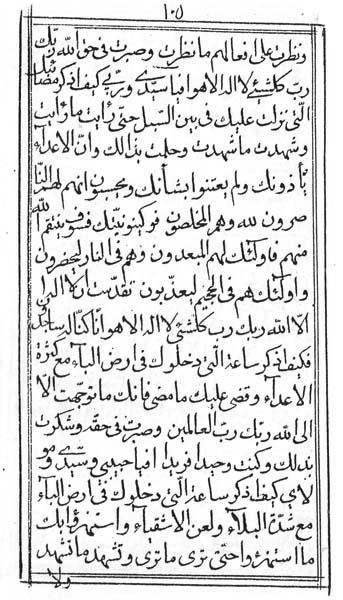 ١٠٥
ونظرت على افعالهم ما نظرت وصبرت في حق الله ربك
رب كلشئ لا اله الا هو فيا سيدي وربي كيف اذكر مصائبك
التي نزلت عليك في بين السبل حتى رأيت ما رأيت
وشهدت ما شهدت وحلمت بذالك وان الاعداء
يأذونك ولم يعتنوا بشأنك ويحسبون انهم لهم النا
صرون لله وهم المخلصون فوكينونيتك فسوف ينتقم الله
منهم فاولئك لهم المبعدون وهم في النار ليحضرون
واولئك هم في الجحيم ليعذبون تقدست لا اله
الا الله ربك رب كلشئ لا اله الا هو انا كنا له ساجدون
فكيف اذكر ساعة التي دخلوك في ارض الباء مع كثرة
الاعداء وقضي عليك ما مضى فانك ما توجهت الا
الى الله ربك رب العالمين وصبرت في حقه وشكرت
بذلك وكنت وحيدا فريدا فيا حبيبي وسيدي ومو
لاي كيف اذكر ساعة التي دخلوك في ارض الباء
مع شدة البلاء ولعن الاشقياء واستهزؤا بك
ما استهزؤا حتى ترى ما ترى وتشهد ما تشهد
ولا